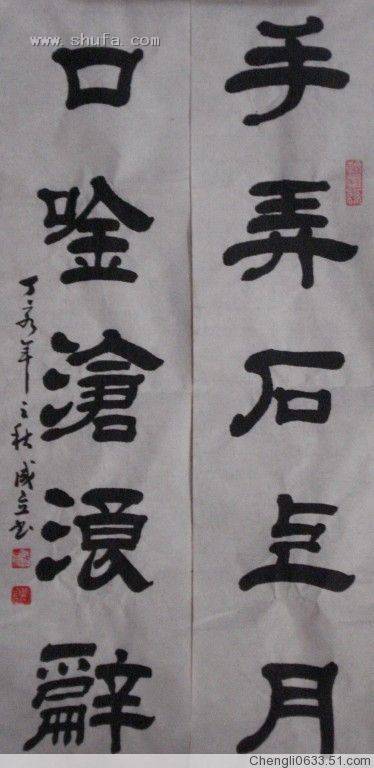 www.shufa.com
手弄石上月
口唫滄浪辭
丁亥年之秋 成立书
Chengli0633.51.com